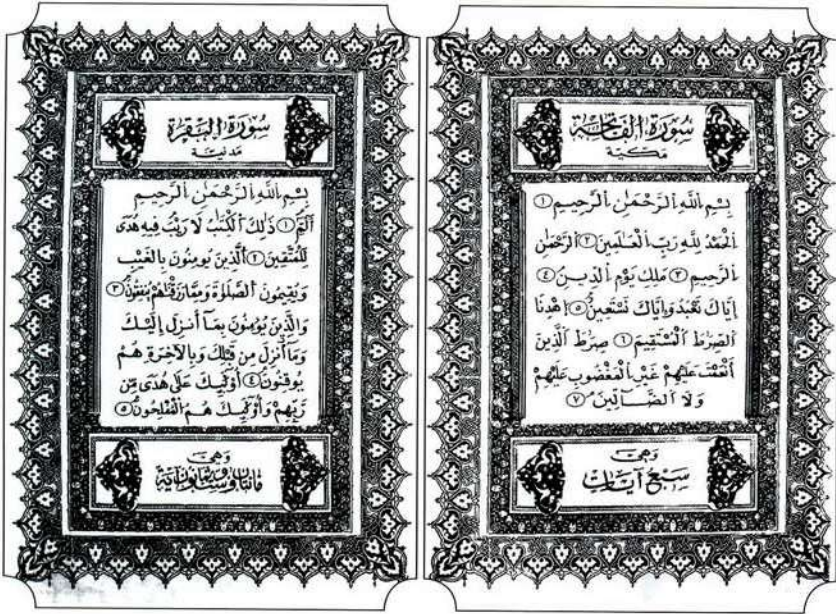 سُورَةُ الفَاتِحَةِ
مَكِّيَّة
بِسْمِ ٱللَّهِ ٱلرَّحْمَٰنِ ٱلرَّحِيمِ ①
ٱلْحَمْدُ لِلَّهِ رَبِّ ٱلْعَٰلَمِينَ ② ٱلرَّحْمَٰنِ
ٱلرَّحِيمِ ③ مَٰلِكِ يَوْمِ ٱلدِّينِ ④
إِيَّاكَ نَعْبُدُ وَإِيَّاكَ نَسْتَعِينُ ⑤ ٱهْدِنَا
ٱلصِّرَٰطَ ٱلْمُسْتَقِيمَ ⑥ صِرَٰطَ ٱلَّذِينَ
أَنْعَمْتَ عَلَيْهِمْ غَيْرِ ٱلْمَغْضُوبِ عَلَيْهِمْ
وَلَا ٱلضَّآلِّينَ ⑦
وَهِيَ
سَبْعُ آيَات
سُورَةُ البَقَرَة
مَدَنِيَّة
بِسْمِ ٱللَّهِ ٱلرَّحْمَٰنِ ٱلرَّحِيمِ
الٓمٓ ① ذَٰلِكَ ٱلْكِتَٰبُ لَا رَيْبَ فِيهِ هُدًى
لِّلْمُتَّقِينَ ② ٱلَّذِينَ يُؤْمِنُونَ بِٱلْغَيْبِ
وَيُقِيمُونَ ٱلصَّلَوٰةَ وَمِمَّا رَزَقْنَٰهُمْ يُنفِقُونَ ③
وَٱلَّذِينَ يُؤْمِنُونَ بِمَآ أُنزِلَ إِلَيْكَ
وَمَآ أُنزِلَ مِن قَبْلِكَ وَبِٱلْآخِرَةِ هُمْ
يُوقِنُونَ ④ أُو۟لَٰٓئِكَ عَلَىٰ هُدًى مِّن
رَّبِّهِمْ وَأُو۟لَٰٓئِكَ هُمُ ٱلْمُفْلِحُونَ ⑤
وَهِيَ
مائتان وست وثمانون آية